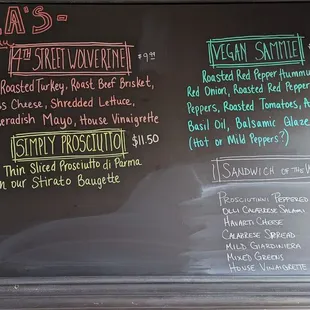 A'S-
4TH STREET WOLVERINE $9.99
Roasted Turkey, Roast Beef Brisket,
ss Cheese, Shredded Lettuce,
eradish Mayo, House Vinaigrette
SIMPLY PROSCIUTTO $11.50
Thin Sliced Prosciutto di Parma
n our Stirato Baugette
VEGAN SAMMIE $
Roasted Red Pepper Hummu
Red Onion, Roasted Red Pepper
Peppers, Roasted Tomatoes, A
Basil Oil, Balsamic Glaze
(Hot or Mild Peppers?)
SANDWICH OF THE W
PROSCIUTTINI PEPPERED
OLLI CALABRESE SALAMI
HAVARTI CHEESE
CALABRESE SPREAD
MILD GIARDINIERA
MIXED GREENS
HOUSE VINAIGRETTE